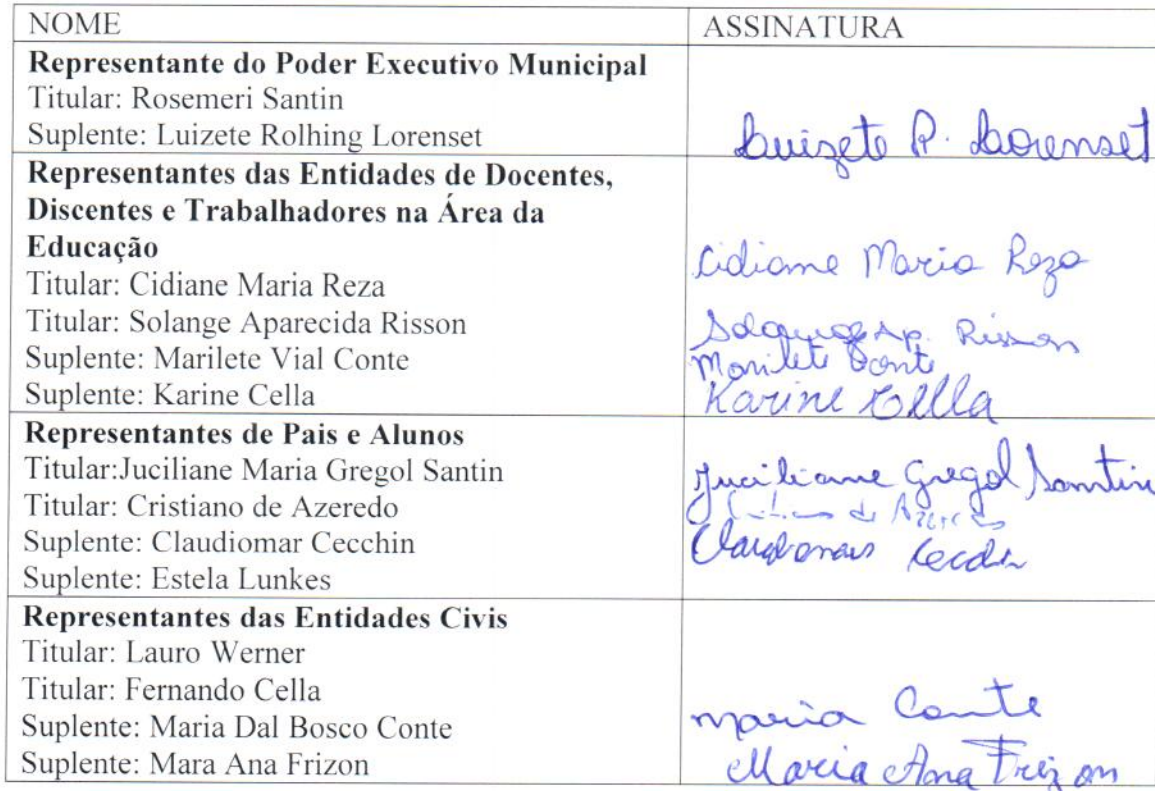 NOME
ASSINATURA
Representante do Poder Executivo Municipal
Titular: Rosemeri Santin
Suplente: Luizete Rolhing Lorenset
Luizete R. Lorenset
Representantes das Entidades de Docentes,
Discentes e Trabalhadores na Área da
Educação
Titular: Cidiane Maria Reza
Titular: Solange Aparecida Risson
Suplente: Marilete Vial Conte
Suplente: Karine Cella
Cidiane Maria Reza
Solange Ap. Risson
Marilete Conte
Karine Cella
Representantes de Pais e Alunos
Titular:Juciliane Maria Gregol Santin
Titular: Cristiano de Azeredo
Suplente: Claudiomar Cecchin
Suplente: Estela Lunkes
Juciliane Gregol Santin
de Azeredo
Cecchin
Representantes das Entidades Civis
Titular: Lauro Werner
Titular: Fernando Cella
Suplente: Maria Dal Bosco Conte
Suplente: Mara Ana Frizon
Maria Conte
Maria Ana Frizon